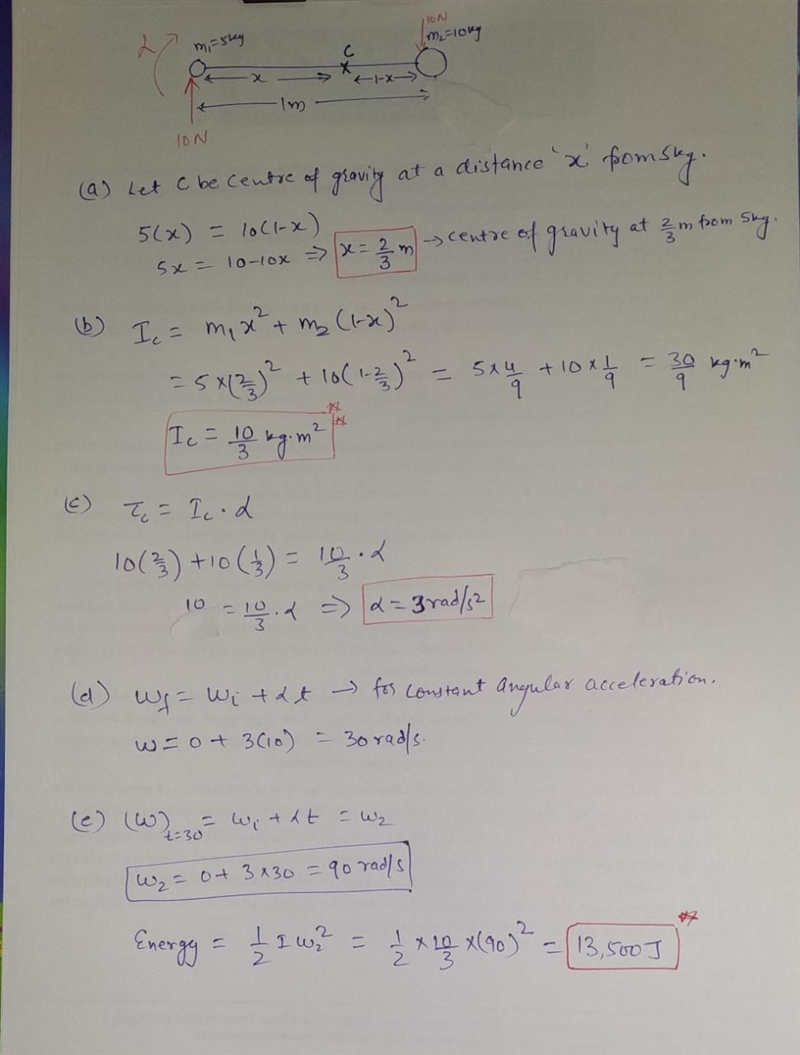 10N
m₁=5kg
C
m₂=10kg
α
x
1-x
1m
10N
(a) Let C be centre of gravity at a distance 'x' from 5kg.
5(x) = 10(1-x)
5x = 10-10x ⇒ x = 2/3 m → centre of gravity at 2/3 m from 5kg.
(b) I_c = m₁x² + m₂(1-x)²
= 5×(2/3)² + 10(1-2/3)² = 5×4/9 + 10×1/9 = 30/9 kg·m²
I_c = 10/3 kg·m² **
(c) τ_c = I_c · α
10(2/3) + 10(1/3) = 10/3 · α
10 = 10/3 · α ⇒ α = 3 rad/s²
(d) ω_f = ω_i + αt → for constant angular acceleration.
ω = 0 + 3(10) = 30 rad/s.
(e) (ω)_{t=30} = ω_i + αt = ω₂
ω₂ = 0 + 3×30 = 90 rad/s
Energy = 1/2 I ω₂² = 1/2 × 10/3 × (90)² = 13,500 J **